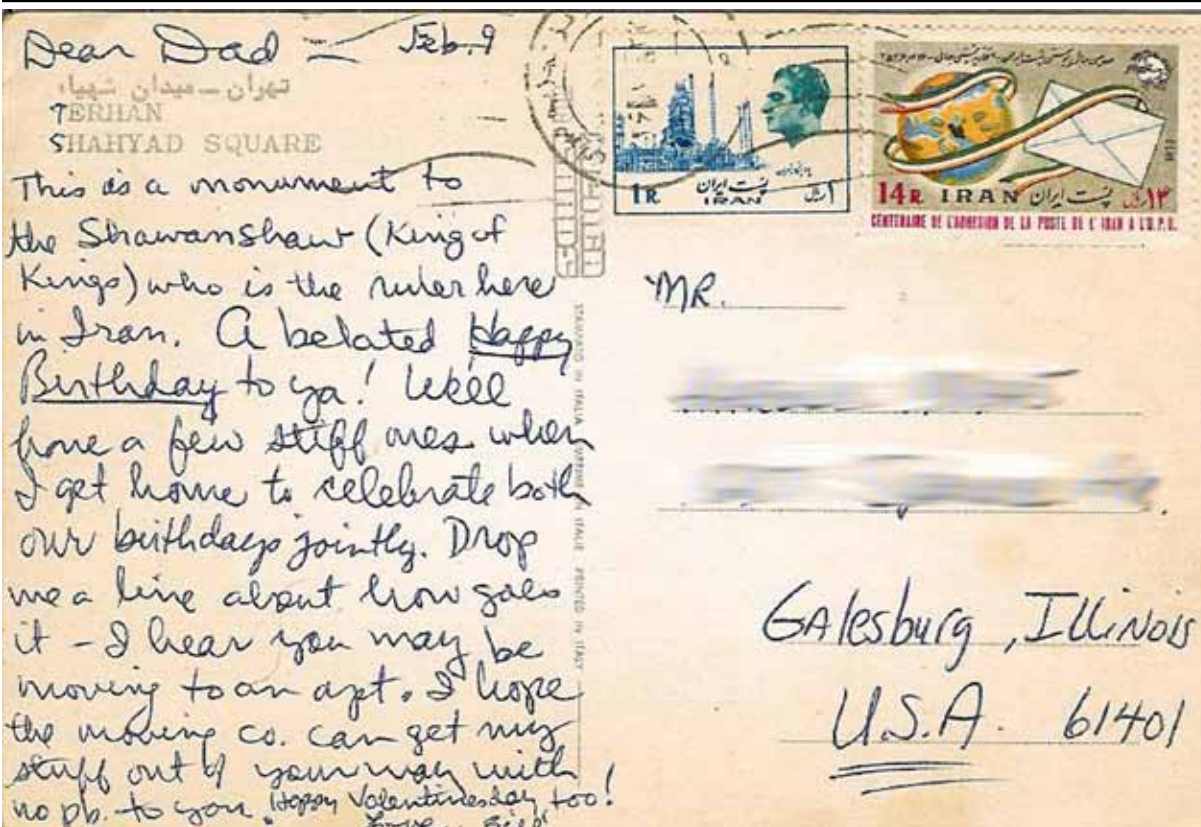 Dear Dad — Feb. 9
تهران - میدان شهیاد
TERHAN
SHAHYAD SQUARE
This is a monument to
the Shawanshaw (King of
Kings) who is the ruler here
in Iran. A belated Happy
Birthday to ya! We'll
have a few stiff ones when
I get home to celebrate both
our birthdays jointly. Drop
me a line about how goes
it - I hear you may be
moving to an apt. I hope
the moving co. can get my
stuff out of your way with
no pb. to you. Happy Valentinesday too!
Love
STAMPATO IN ITALIA IMPRIME EN ITALIE PRINTED IN ITALY
1R پست ایران ۱ ریال
IRAN
14R IRAN پست ایران ۱۴ ریال
CENTENAIRE DE L'ADHESION DE LA POSTE DE L'IRAN A L'U.P.U.
MR.
Galesburg, Illinois
U.S.A. 61401